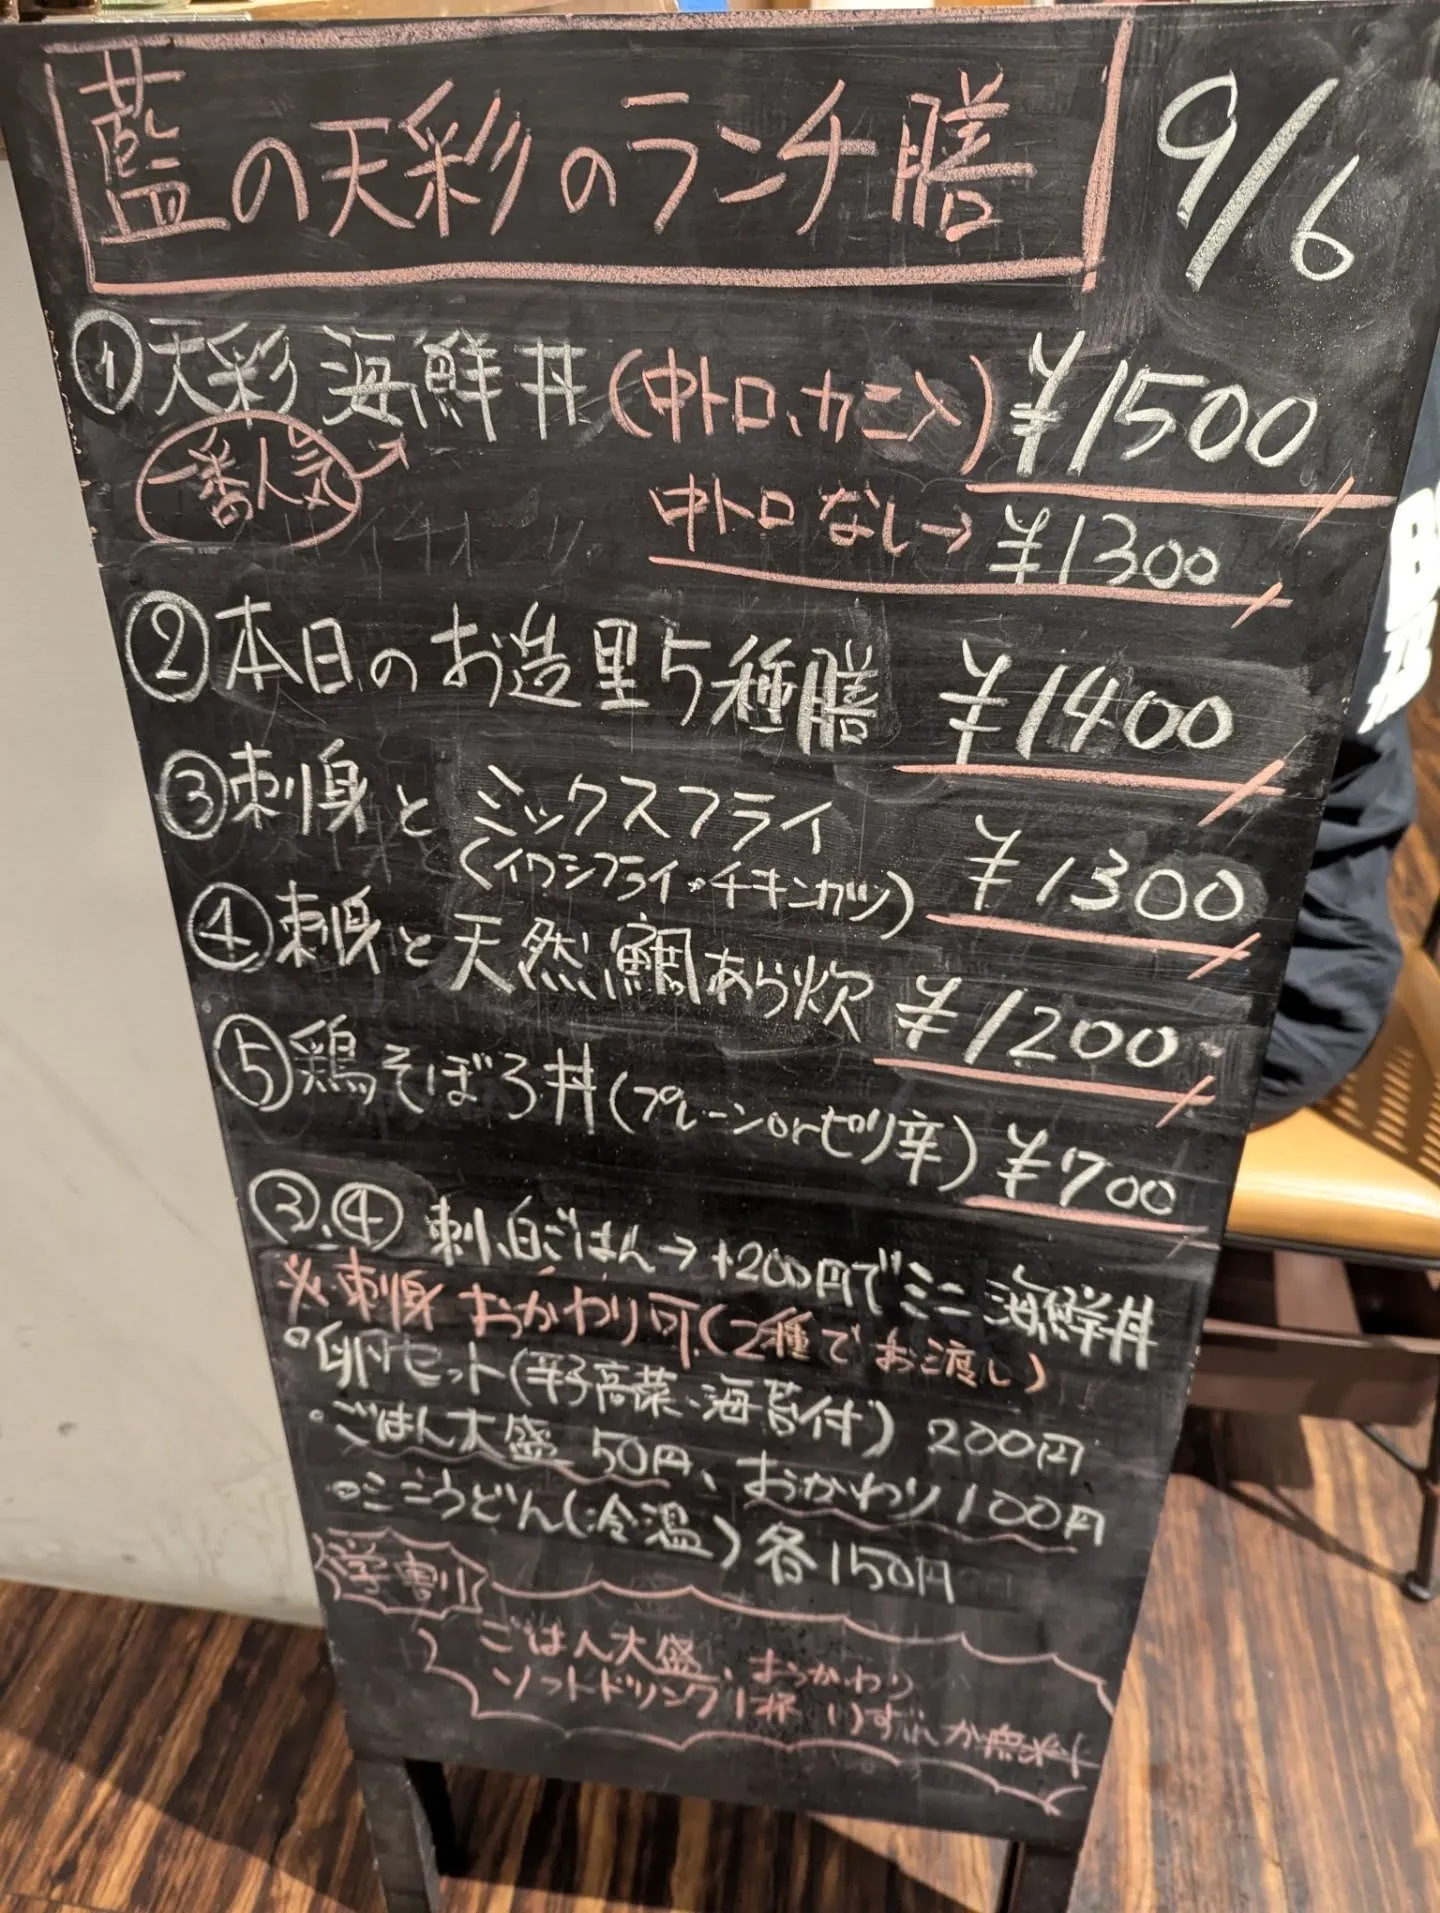 藍の天彩のランチ膳
9/6
①天彩海鮮丼(中トロ、カニ入) ¥1500
一番人気→
中トロなし→ ¥1300
②本日のお造里5種膳 ¥1400
③刺身とミックスフライ ¥1300
(イワシフライ・チキンカツ)
④刺身と天然鯛あら炊 ¥1200
⑤鶏そぼろ丼(プレーンorピリ辛) ¥700
③.④ 刺、白ごはん→+200円でミニ海鮮丼
※刺身おかわり可(2種でお渡し)
○卵セット(辛子高菜、海苔付) 200円
○ごはん大盛 50円、おかわり100円
○ミニうどん(冷温)各150円
学割
ごはん大盛、おかわり
ソフトドリンク1杯 いずれか無料